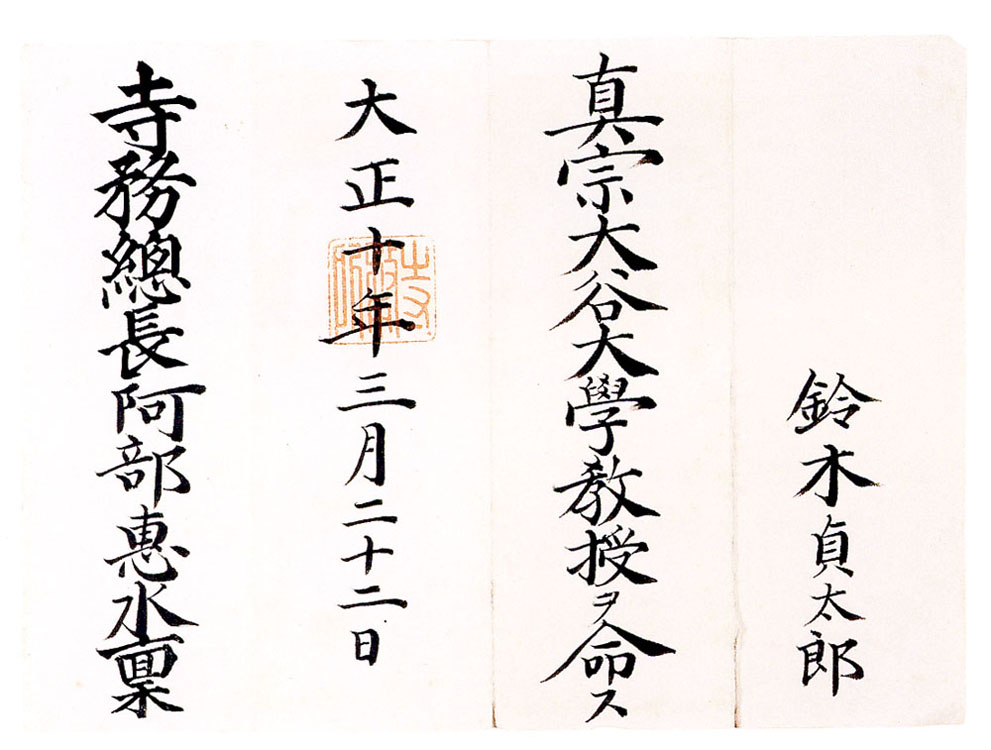 鈴木貞太郎
真宗大谷大學教授ヲ命ス
大正十年三月二十二日
寺務總長阿部惠水稟